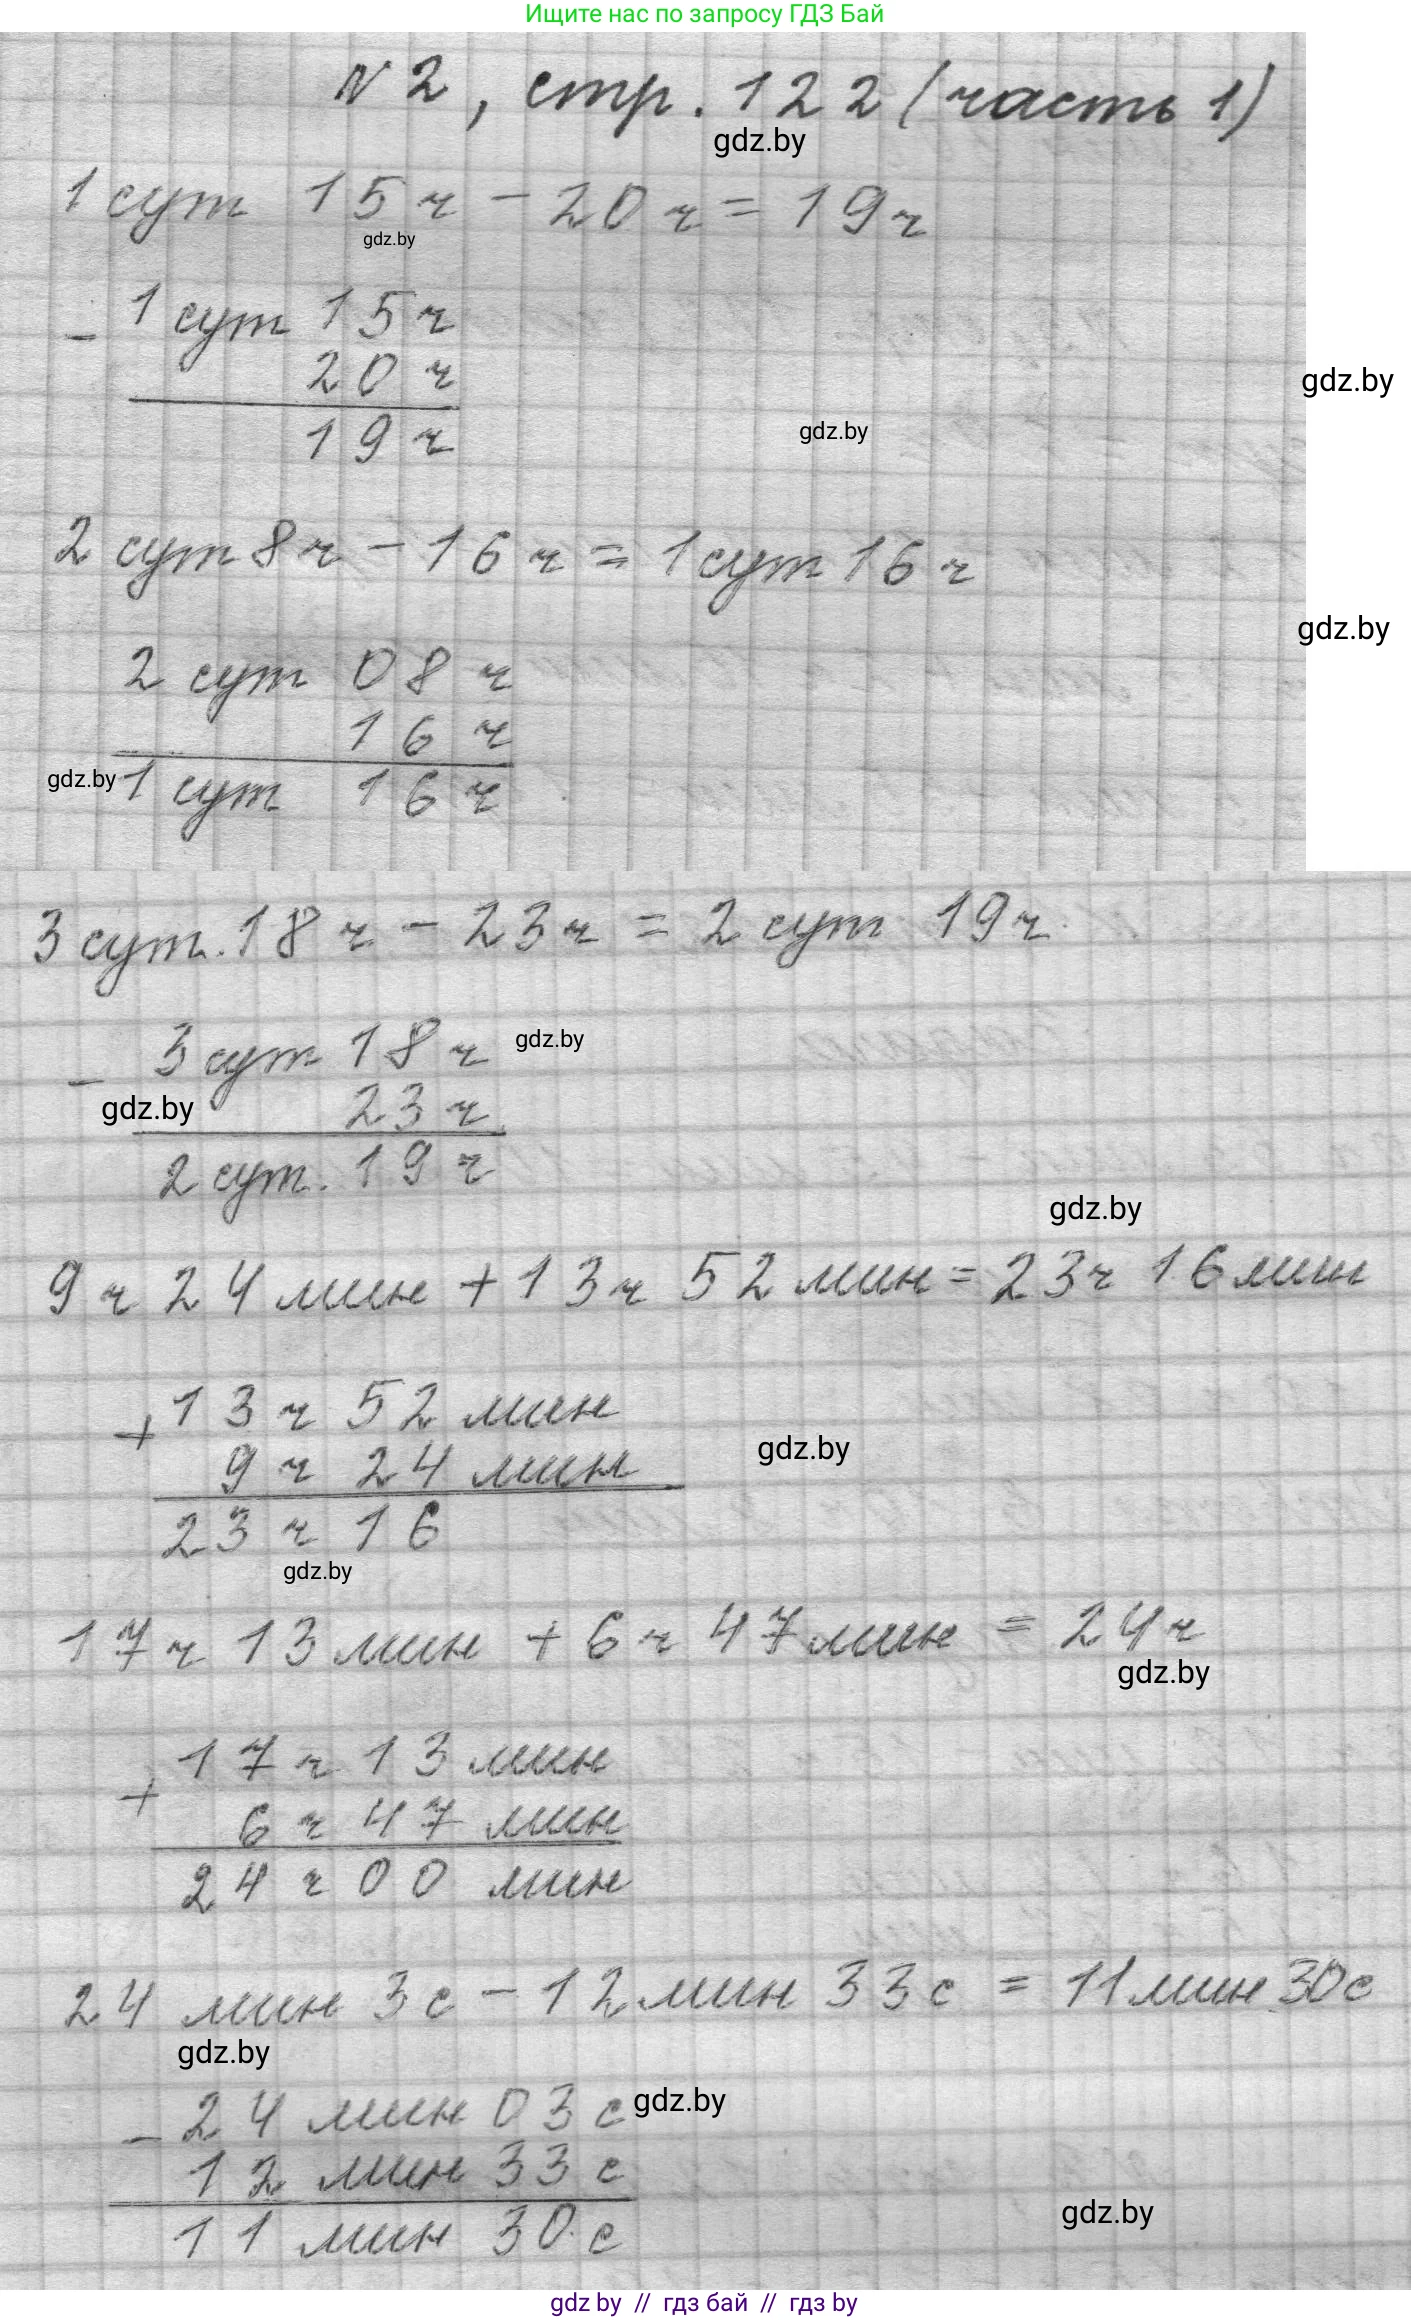 Ищите нас по запросу ГДЗ Бай
N 2, стр. 122 (часть 1)
gdz.by
1 сут 15 ч - 20 ч = 19 ч
gdz.by
- 1 сут 15 ч
20 ч
gdz.by
19 ч
gdz.by
2 сут 8 ч - 16 ч = 1 сут 16 ч
gdz.by
2 сут 08 ч
16 ч
gdz.by
1 сут 16 ч
3 сут. 18 ч - 23 ч = 2 сут 19 ч
- 3 сут 18 ч
gdz.by
gdz.by
23 ч
2 сут. 19 ч
gdz.by
9 ч 24 мин + 13 ч 52 мин = 23 ч 16 мин
+ 13 ч 52 мин
gdz.by
9 ч 24 мин
23 ч 16
gdz.by
17 ч 13 мин + 6 ч 47 мин = 24 ч
gdz.by
+ 17 ч 13 мин
6 ч 47 мин
24 ч 00 мин
24 мин 3 с - 12 мин 33 с = 11 мин 30 с
gdz.by
- 24 мин 03 с
gdz.by
12 мин 33 с
gdz.by
11 мин 30 с
gdz by // гдз бай // гдз by